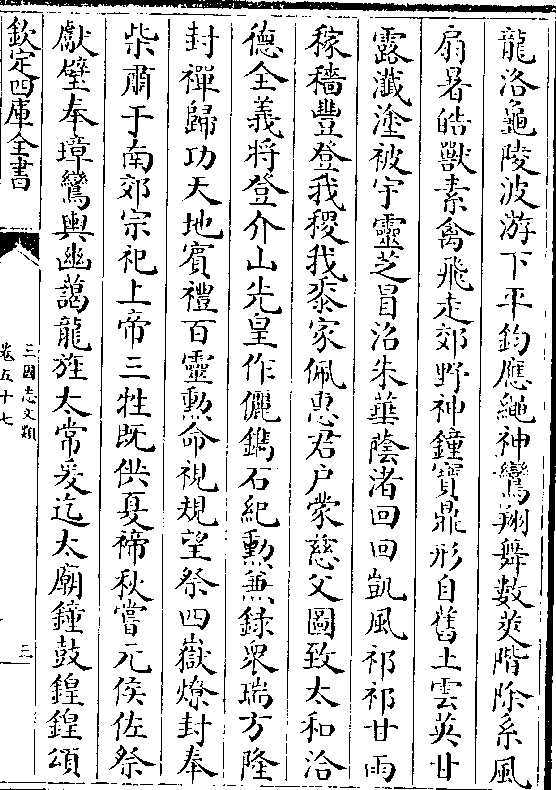 龍洛龜陵波游下平鈞應繩神鸞翔舞數莢階除系風
扇暑皓獸素禽飛走郊野神鐘寶鼎形自舊土雲英甘
露瀸塗被宇靈芝冒沼朱華蔭渚回回凱風祁祁甘雨
稼穡豐登我稷我黍家佩惠君户蒙慈父圖致太和洽
德全義將登介山先皇作儷鐫石紀勲兼録衆瑞方隆
封禪歸功天地賓禮百靈勲命視規望祭四嶽燎封奉
柴肅于南郊宗祀上帝三牲既供夏禘秋嘗元侯佐祭
獻璧奉璋鸞輿幽藹龍旂太常爰迄太廟鐘鼓鍠鍠頌
欽定四庫全書
三國志文類
卷五十七
三